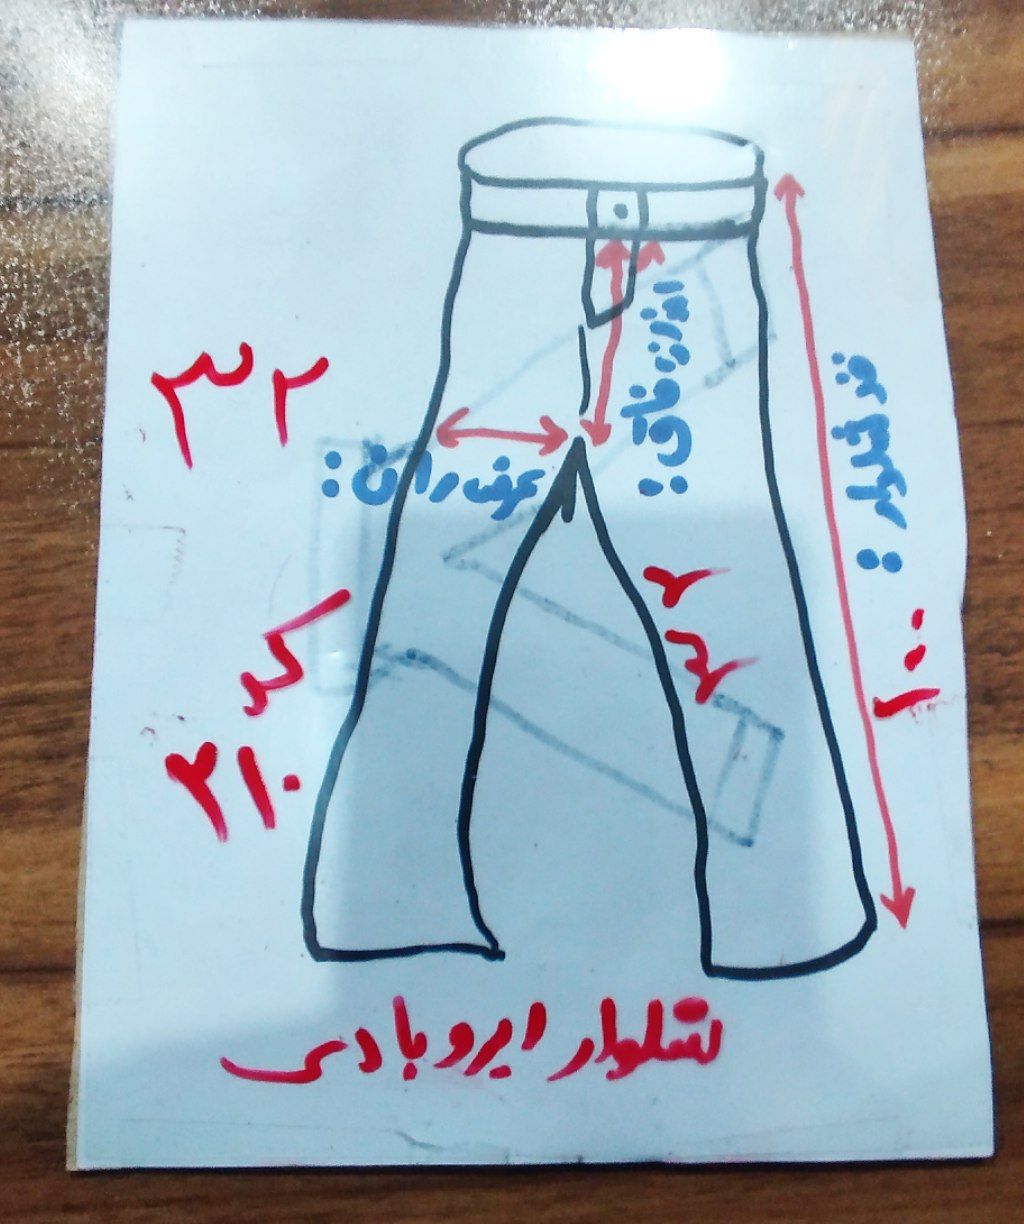 اندازه فاق :
قد شلوار :
۱۰۰
۳۲
عرض ران :
کد
۲۱۰
شلوار ایروبادی